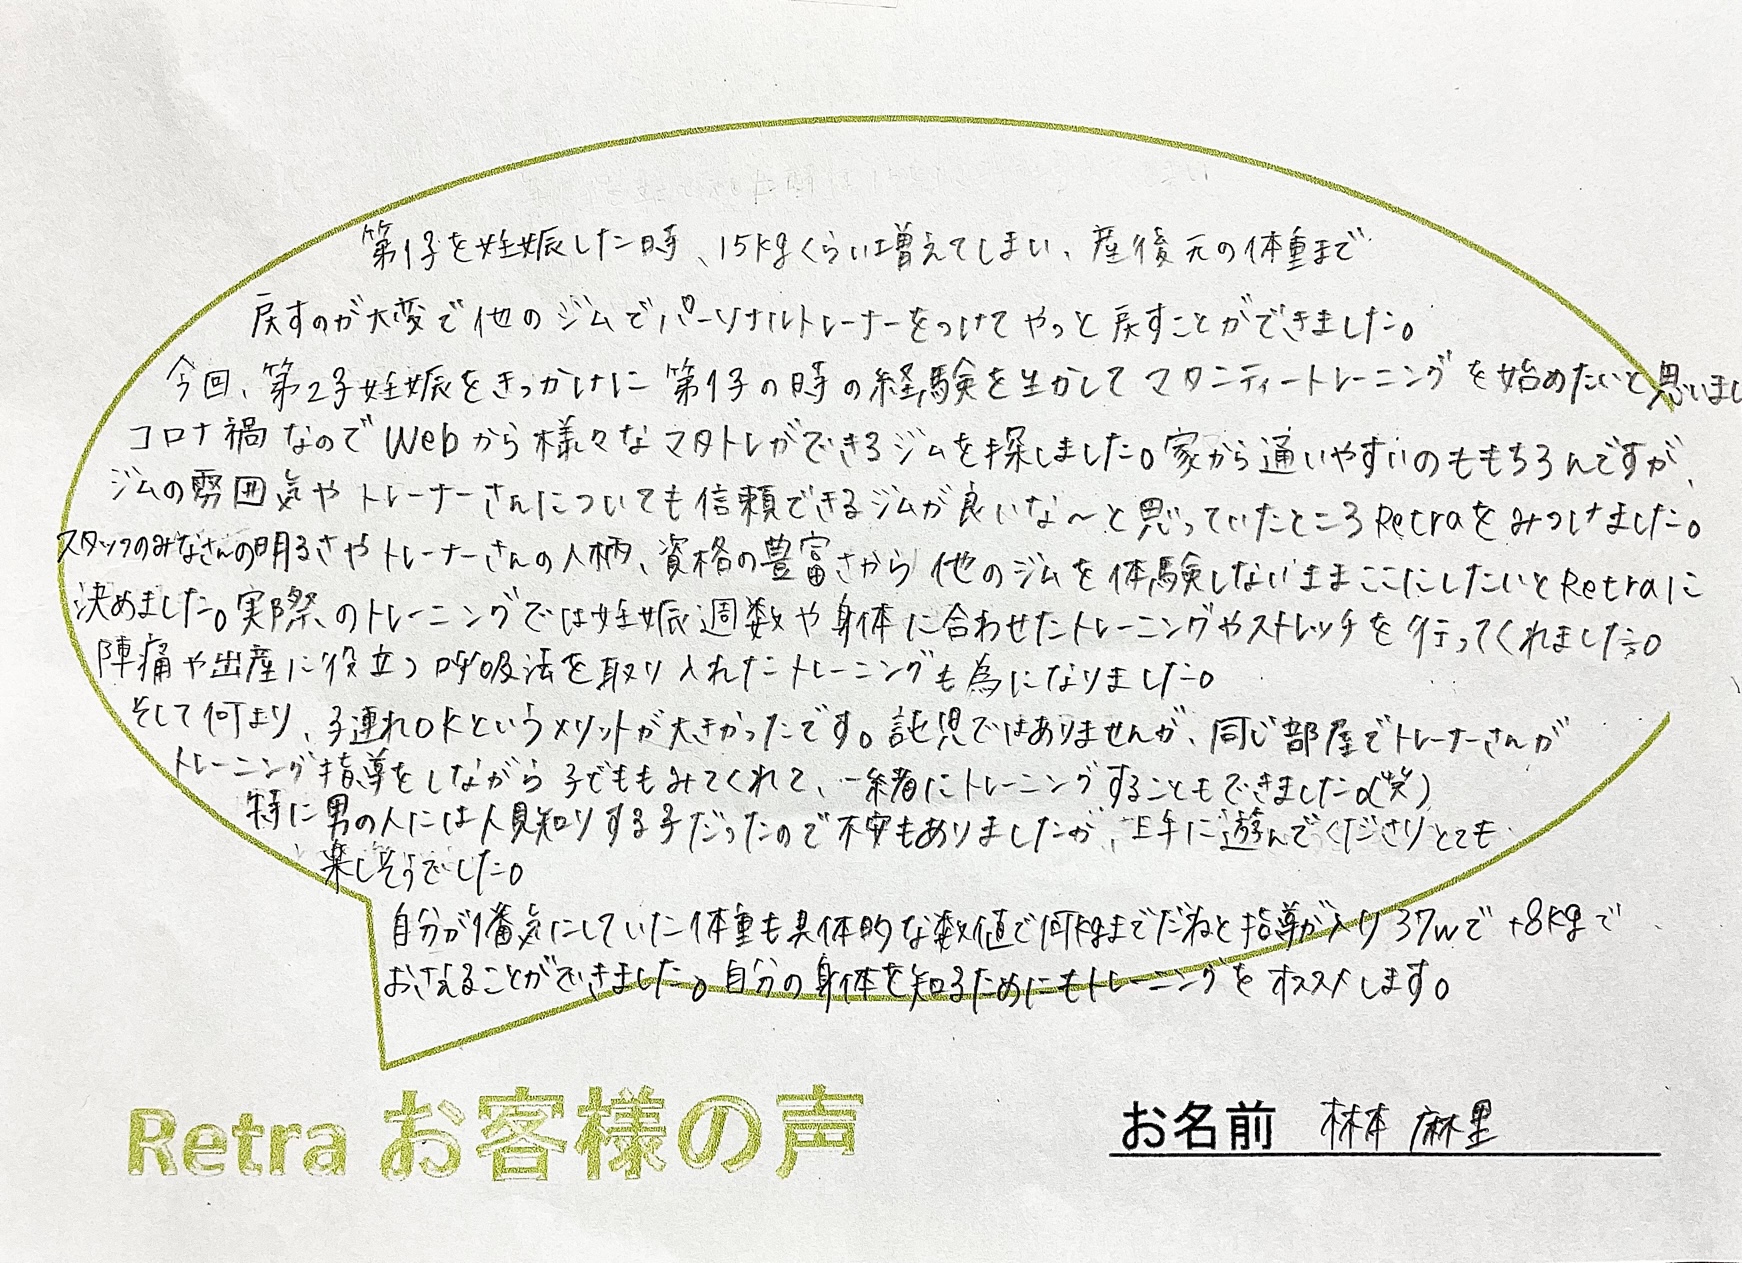 第1子を妊娠した時、15kgくらい増えてしまい、産後元の体重まで
戻すのが大変で他のジムでパーソナルトレーナーをつけてやっと戻すことができました。
今回、第2子妊娠をきっかけに第1子の時の経験を生かしてマタニティートレーニングを始めたいと思いまし
コロナ禍なのでWebから様々なマタトレができるジムを探しました。家から通いやすいのももちろんですが、
ジムの雰囲気やトレーナーさんについても信頼できるジムが良いな〜と思っていたところRetraをみつけました。
スタッフのみなさんの明るさやトレーナーさんの人柄、資格の豊富さから他のジムを体験しないままここにしたいとRetraに
決めました。実際のトレーニングでは妊娠週数や身体に合わせたトレーニングやストレッチを行ってくれました。
陣痛や出産に役立つ呼吸法を取り入れたトレーニングも為になりました。
そして何より、子連れOKというメリットが大きかったです。託児ではありませんが、同じ部屋でトレーナーさんが
トレーニング指導をしながら子どももみてくれて、一緒にトレーニングすることもできました。(笑)
特に男の人には人見知りする子だったので不安もありましたが、上手に遊んでくださりとても
楽しそうでした。
自分が1番気にしていた体重も具体的な数値で何kgまでだねと指導が入り37wで+8kgで
おさえることができました。自分の身体を知るためにもトレーニングをオススメします。
Retra お客様の声
お名前 林本 麻里